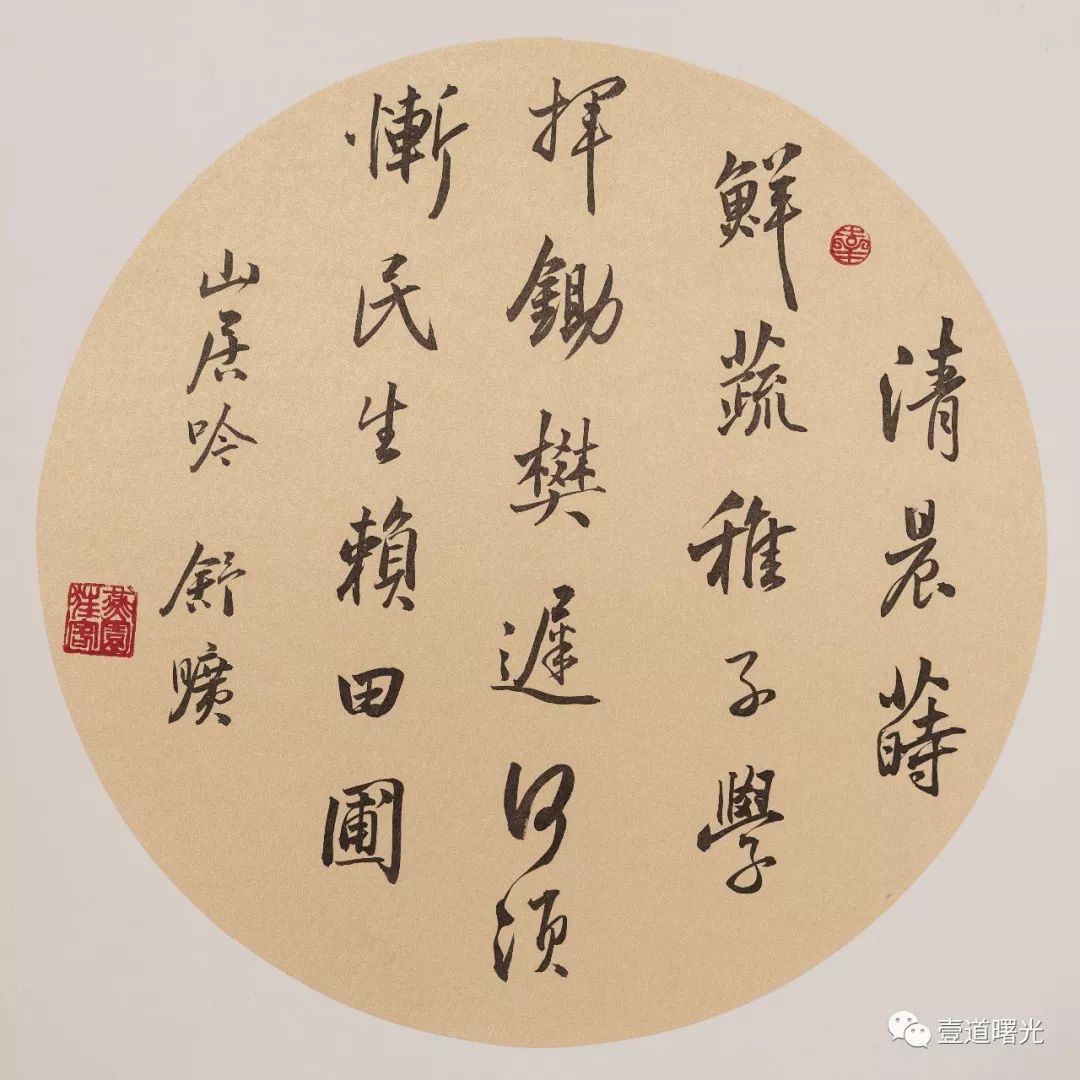 清晨蒔
鮮蔬稚子學
揮鋤樊遲何須
慚民生賴田圃
山居吟 舒曠
壹道曙光